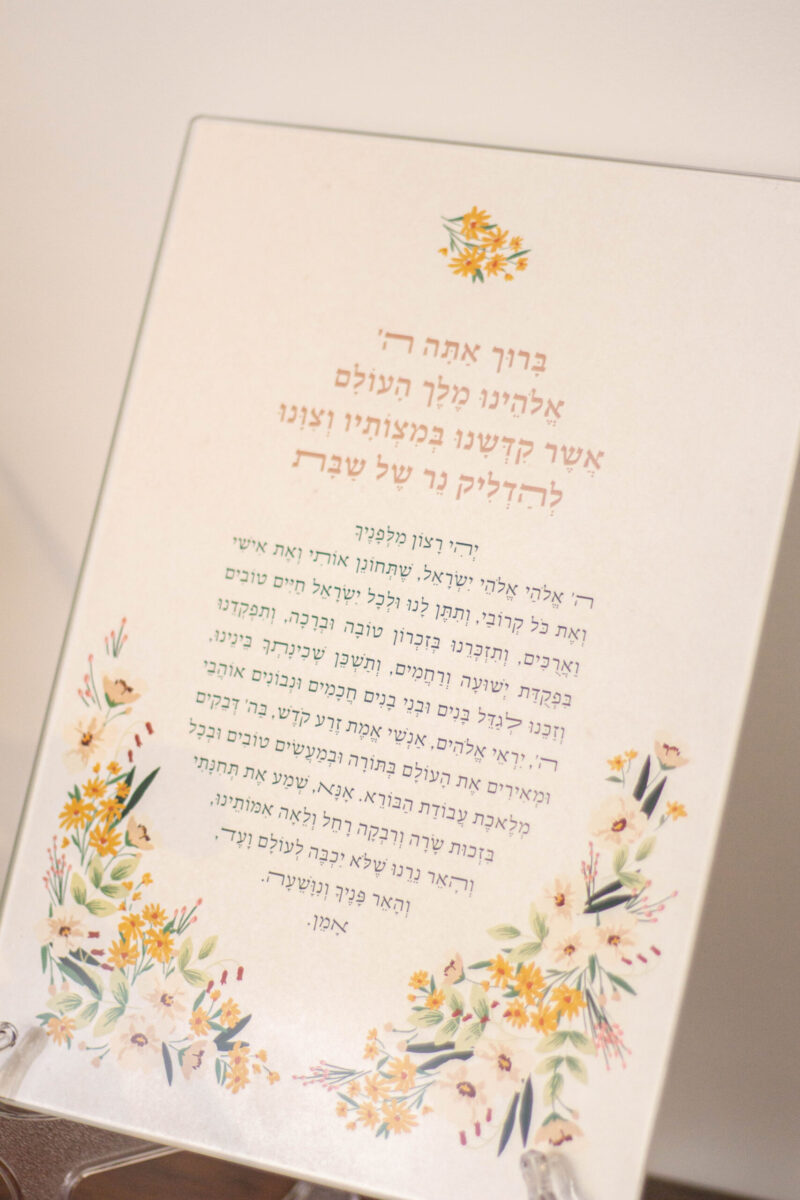 בָּרוּךְ אַתָּה ה'
אֱלֹהֵינוּ מֶלֶךְ הָעוֹלָם
אֲשֶׁר קִדְּשָׁנוּ בְּמִצְוֹתָיו וְצִוָּנוּ
לְהַדְלִיק נֵר שֶׁל שַׁבָּת
יְהִי רָצוֹן מִלְּפָנֶיךָ
ה' אֱלֹהַי אֱלֹהֵי יִשְׂרָאֵל, שֶׁתְּחוֹנֵן אוֹתִי וְאֶת אִישִׁי
וְאֶת כֹּל קְרוֹבַי, וְתִתֶּן לָנוּ וּלְכָל יִשְׂרָאֵל חַיִּים טוֹבִים
וַאֲרֻכִּים, וְתִזְכְּרֵנוּ בְּזִכְרוֹן טוֹבָה וּבְרָכָה, וְתִפְקְדֵנוּ
בִּפְקֻדַּת יְשׁוּעָה וְרַחֲמִים, וְתַשְׁכֵּן שְׁכִינָתְךָ בֵּינֵינוּ,
וְזַכֵּנוּ לְגַדֵּל בָּנִים וּבְנֵי בָנִים חֲכָמִים וּנְבוֹנִים אוֹהֲבֵי
ה', יִרְאֵי אֱלֹהִים, אַנְשֵׁי אֱמֶת זֶרַע קֹדֶשׁ, בַּה' דְּבֵקִים
וּמְאִירִים אֶת הָעוֹלָם בְּתּוֹרָה וּבְמַעֲשִׂים טוֹבִים וּבְכָל
מְלֶאכֶת עֲבוֹדַת הַבּוֹרֵא. אָנָּא, שְׁמַע אֶת תְּחִנָּתִי
בִּזְכוּת שָׂרָה וְרִבְקָה רָחֵל וְלֵאָה אִמּוֹתֵינוּ,
וְהָאֵר נֵרֵנוּ שֶׁלֹּא יִכְבֶּה לְעוֹלָם וָעֶד,
וְהָאֵר פָּנֶיךָ וְנִוָּשֵׁעָה.
אָמֵן.